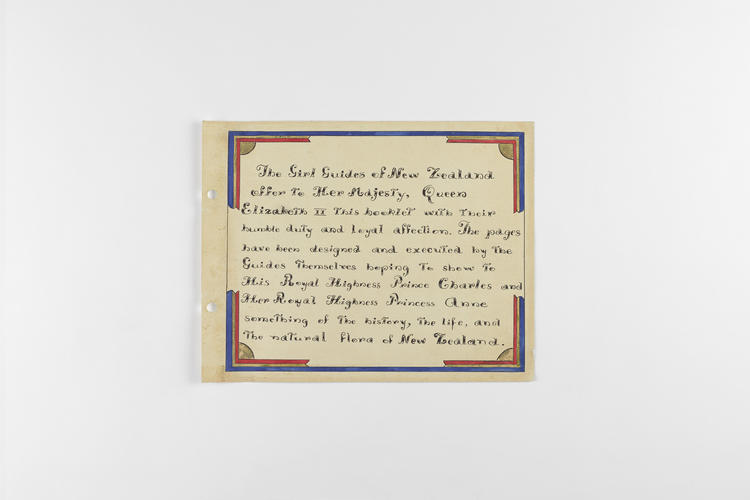 The Girl Guides of New Zealand
offer to Her Majesty, Queen
Elizabeth II this booklet with their
humble duty and loyal affection. The pages
have been designed and executed by the
Guides themselves hoping to show to
His Royal Highness Prince Charles and
Her Royal Highness Princess Anne
something of the history, the life, and
the natural flora of New Zealand.